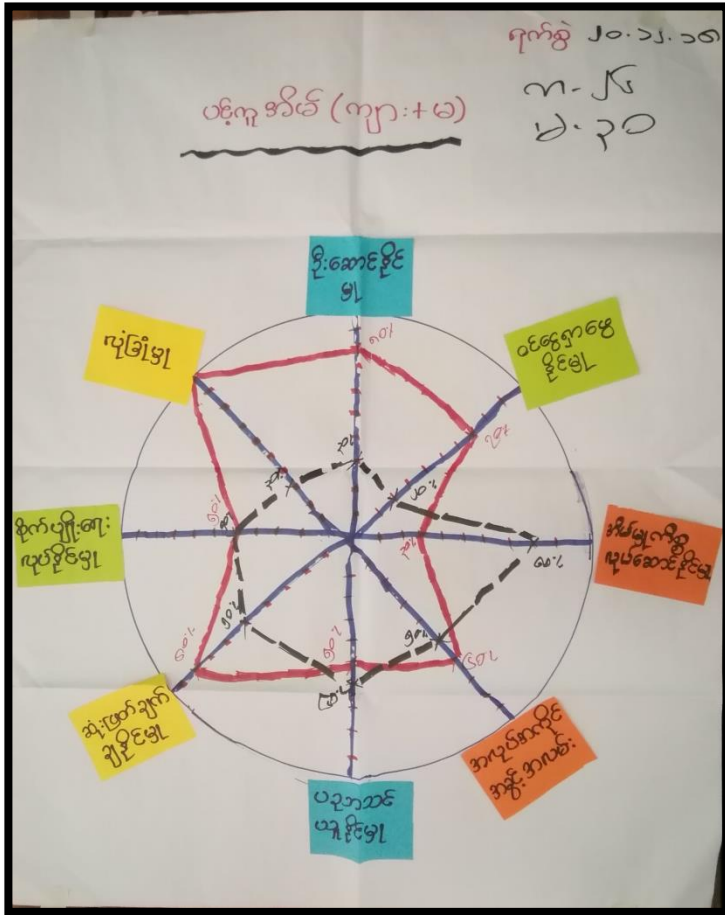 ရက်စွဲ ၂၀.၁၂.၁၈
ကျ - ၂၄
မ - ၃၀
ပင့်ကူအိမ် (ကျား+မ)
ဦးဆောင်နိုင်
မှု
ဝင်ငွေရှာဖွေ
နိုင်မှု
အိမ်မှုကိစ္စ
လုပ်ဆောင်နိုင်မှု
အလုပ်အကိုင်
အခွင့်အလမ်း
ပညာသင်
ယူနိုင်မှု
ဆုံးဖြတ်ချက်
ချနိုင်မှု
စိုက်ပျိုးရေး
လုပ်နိုင်မှု
လုံခြုံမှု
၈၀%
၇၀%
၃၀%
၂၀%
၃၀%
၃၀%
၈၀%
၅၀%
၅၀%
၅၀%
၆၀%
၅၀%
၆၀%
၈၀%